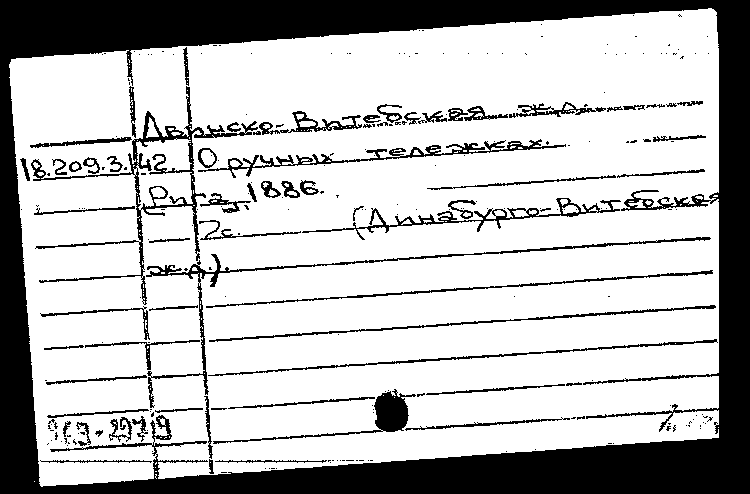 Двинско-Витебская ж.д.
18.209.3.142. О ручных тележках.
Рига, 1886.
2с. (Динабурго-Витебская
ж.д.).